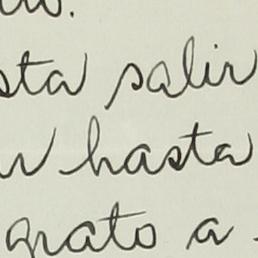 sta salir
hasta
grato a